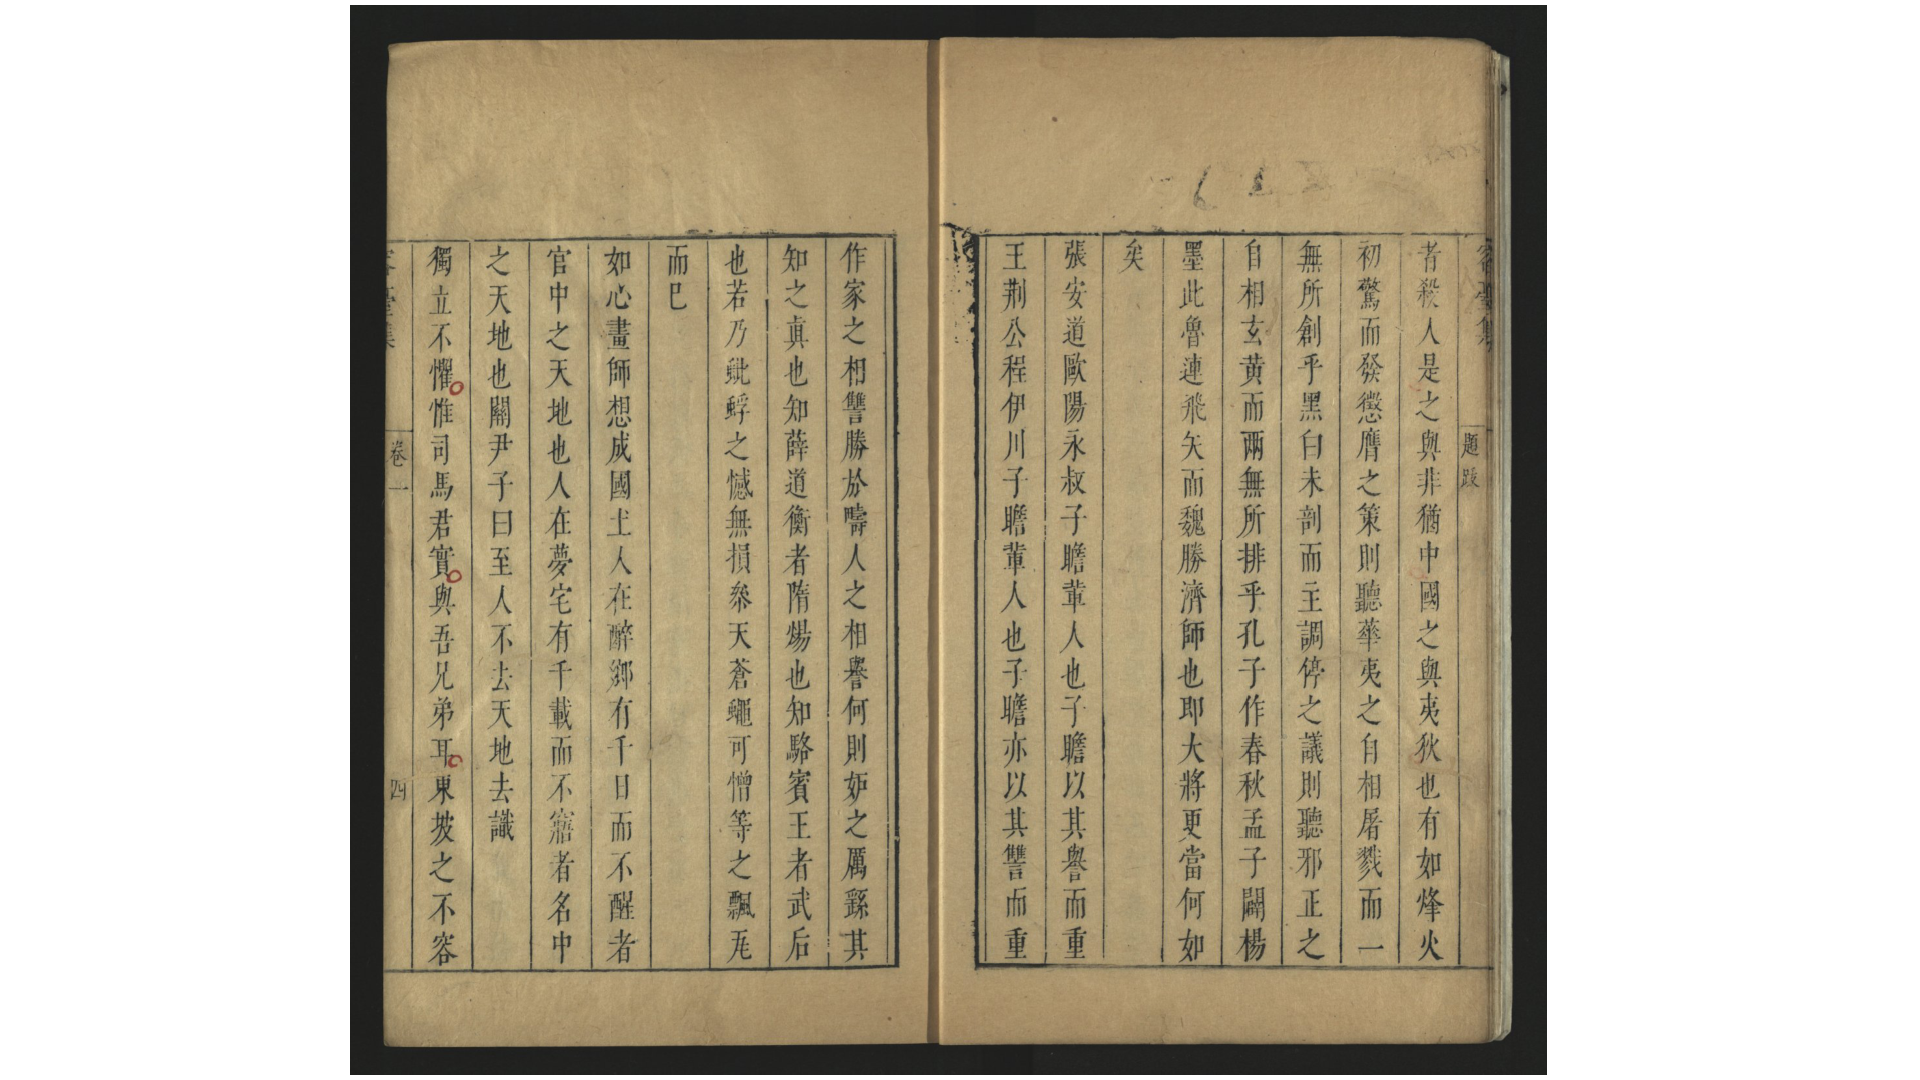 容臺集
題跋
者殺人是之與非猶中國之與夷狄也有如烽火
初驚而發懲膺之策則聽華夷之自相屠戮而一
無所創乎黑白未剖而主調停之議則聽邪正之
自相玄黃而兩無所排乎孔子作春秋孟子闢楊
墨此魯連飛矢而魏勝濟師也即大將更當何如
矣
張安道歐陽永叔子瞻輩人也子瞻以其譽而重
王荆公程伊川子瞻輩人也子瞻亦以其讐而重
作家之相讐勝於疇人之相譽何則妒之厲繇其
知之眞也知薛道衡者隋煬也知駱賓王者武后
也若乃蚍蜉之憾無損叅天蒼蠅可憎等之飄瓦
而巳
如心畫師想成國土人在醉鄉有千日而不醒者
官中之天地也人在夢宅有千載而不寤者名中
之天地也關尹子曰至人不去天地去識
獨立不懼惟司馬君實與吾兄弟耳東坡之不容
容臺集
卷一
四